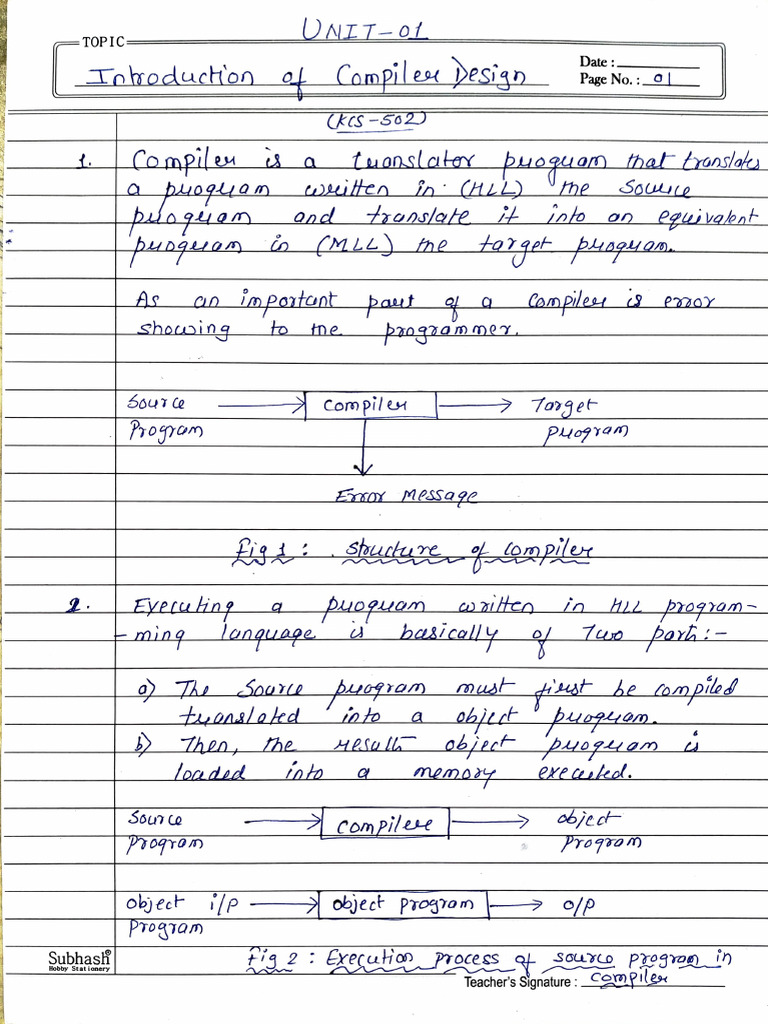 UNIT-01
TOPIC
Introduction of Compiler Design
Date :
Page No. : 01
(KCS-502)
1. Compiler is a translator program that translates
a program written in (HLL) the source
program and translate it into an equivalent
program in (MLL) the target program.
As an important part of a compiler is error
showing to the programmer.
Source → Compiler → Target
Program program
Error Message
Fig 1 : structure of compiler
2. Executing a program written in HLL program-
-ming language is basically of Two part:-
a) The source program must first be compiled
translated into a object program.
b) Then, the results object program is
loaded into a memory executed.
Source → Compiler → object
program program
Object i/p → object program → o/p
Program
Fig 2 : Execution process of source program in
compiler
Subhash®
Hobby Stationery
Teacher's Signature :